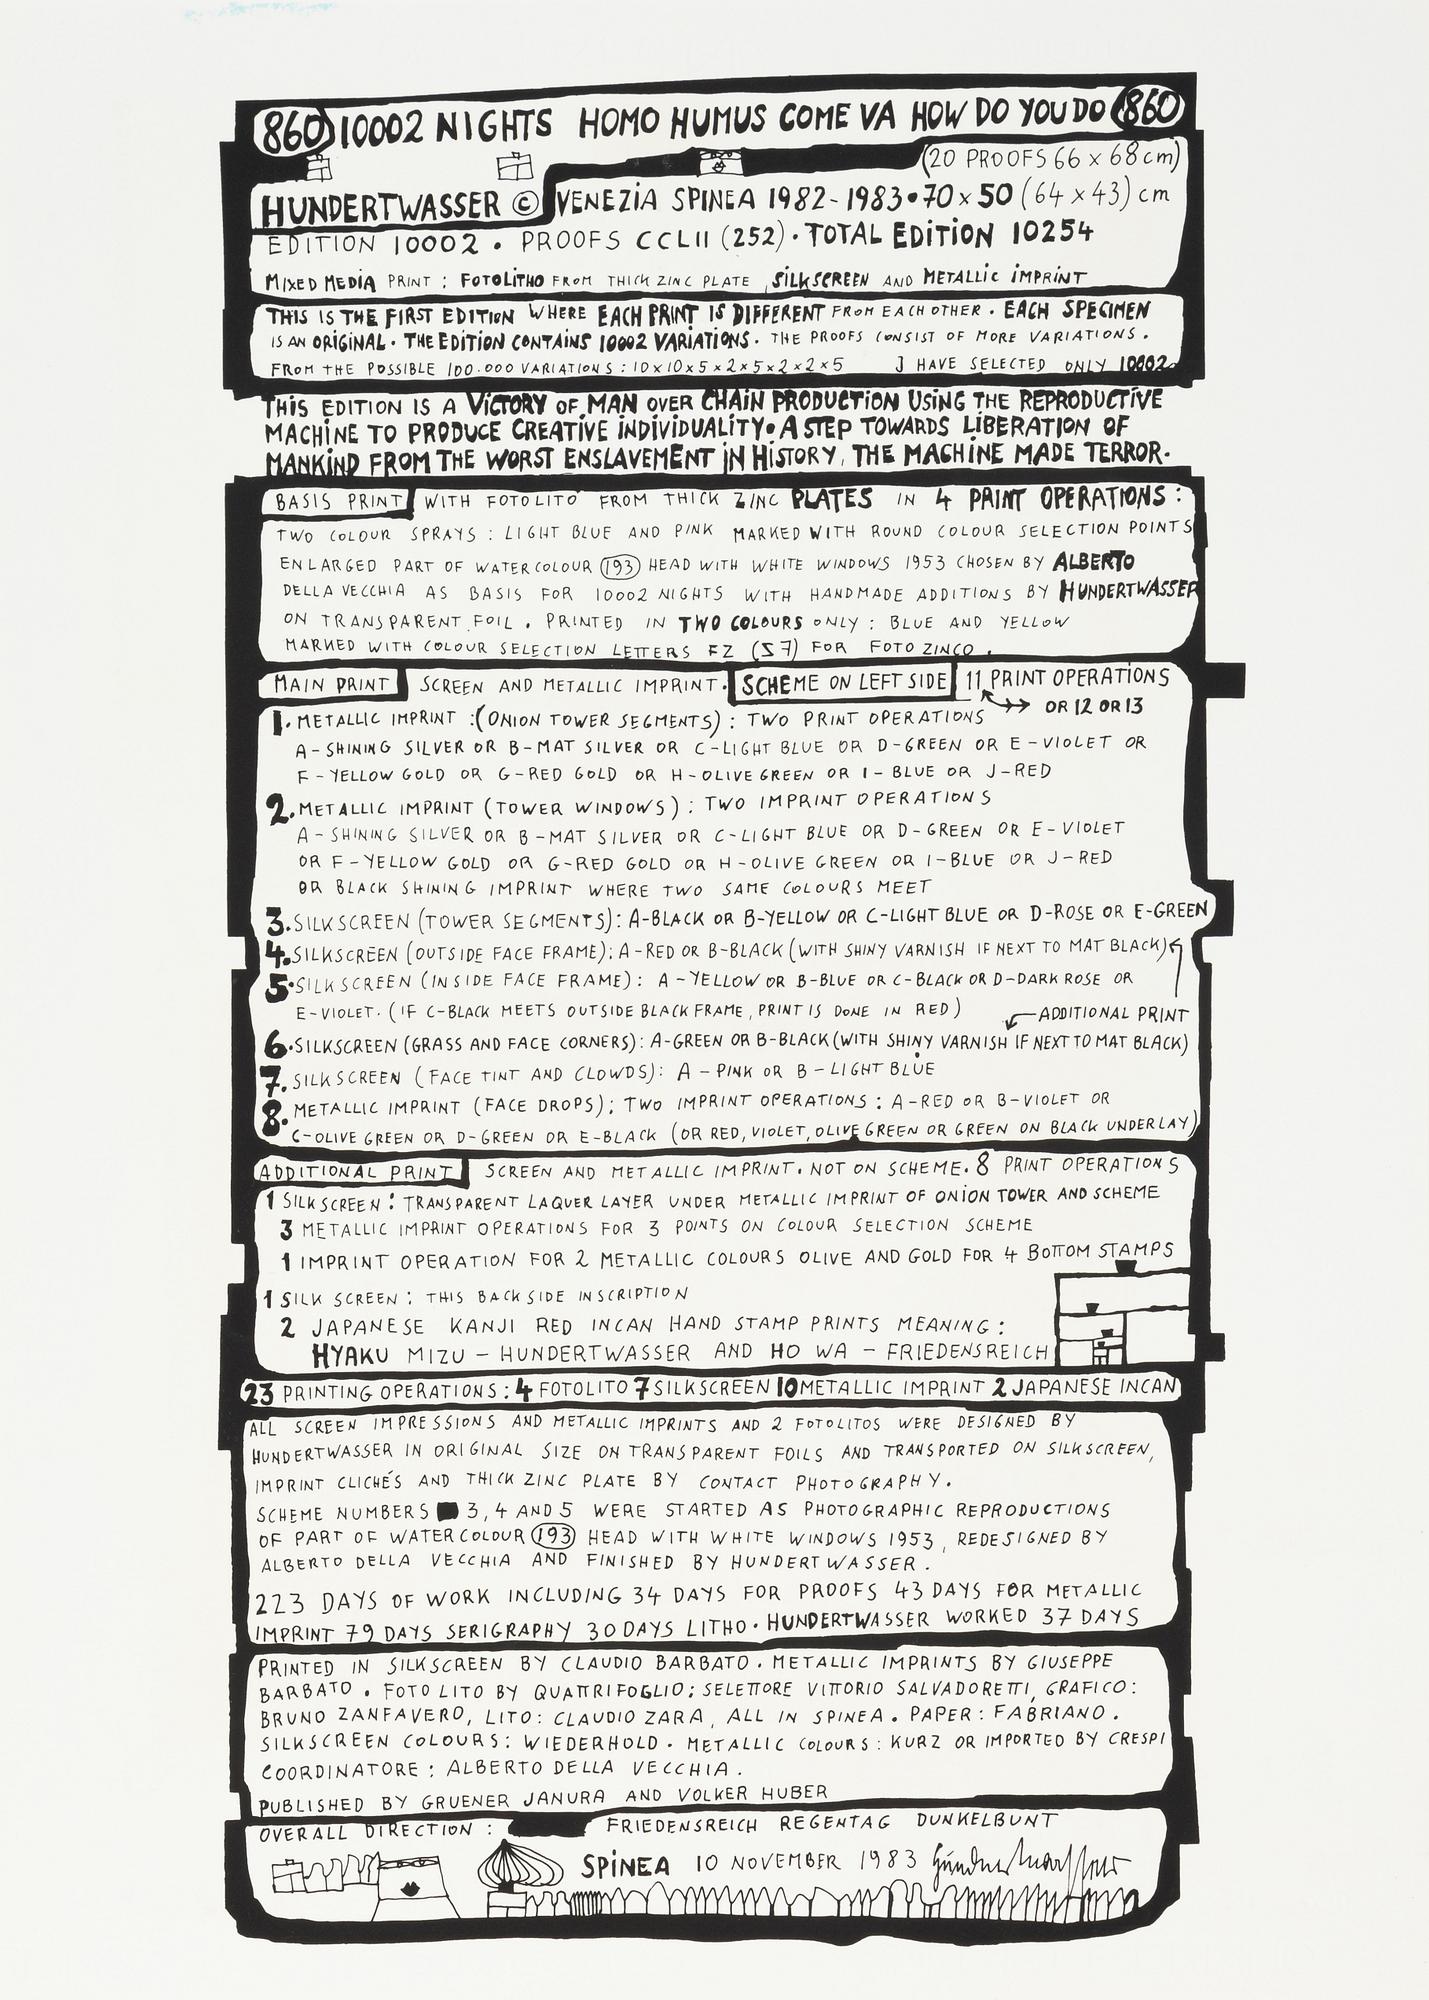 860 10002 NIGHTS HOMO HUMUS COME VA HOW DO YOU DO 860
(20 PROOFS 66 x 68 cm)
HUNDERTWASSER © VENEZIA SPINEA 1982-1983 • 70 x 50 (64 x 43) cm
EDITION 10002 • PROOFS CCLII (252) • TOTAL EDITION 10254
MIXED MEDIA PRINT : FOTOLITHO FROM THICK ZINC PLATE, SILKSCREEN AND METALLIC IMPRINT
THIS IS THE FIRST EDITION WHERE EACH PRINT IS DIFFERENT FROM EACH OTHER • EACH SPECIMEN
IS AN ORIGINAL • THE EDITION CONTAINS 10002 VARIATIONS • THE PROOFS CONSIST OF MORE VARIATIONS.
FROM THE POSSIBLE 100.000 VARIATIONS : 10x10x5x2x5x2x2x5 J HAVE SELECTED ONLY 10002.
THIS EDITION IS A VICTORY OF MAN OVER CHAIN PRODUCTION USING THE REPRODUCTIVE
MACHINE TO PRODUCE CREATIVE INDIVIDUALITY • A STEP TOWARDS LIBERATION OF
MANKIND FROM THE WORST ENSLAVEMENT IN HISTORY, THE MACHINE MADE TERROR.
BASIS PRINT WITH FOTOLITO FROM THICK ZINC PLATES IN 4 PRINT OPERATIONS :
TWO COLOUR SPRAYS : LIGHT BLUE AND PINK MARKED WITH ROUND COLOUR SELECTION POINTS
ENLARGED PART OF WATERCOLOUR 193 HEAD WITH WHITE WINDOWS 1953 CHOSEN BY ALBERTO
DELLA VECCHIA AS BASIS FOR 10002 NIGHTS WITH HANDMADE ADDITIONS BY HUNDERTWASSER
ON TRANSPARENT FOIL. PRINTED IN TWO COLOURS ONLY : BLUE AND YELLOW
MARKED WITH COLOUR SELECTION LETTERS FZ (S7) FOR FOTO ZINCO.
MAIN PRINT SCREEN AND METALLIC IMPRINT. SCHEME ON LEFT SIDE 11 PRINT OPERATIONS
OR 12 OR 13
1. METALLIC IMPRINT : (ONION TOWER SEGMENTS) : TWO PRINT OPERATIONS
A-SHINING SILVER OR B-MAT SILVER OR C-LIGHT BLUE OR D-GREEN OR E-VIOLET OR
F-YELLOW GOLD OR G-RED GOLD OR H-OLIVE GREEN OR I-BLUE OR J-RED
2. METALLIC IMPRINT (TOWER WINDOWS) : TWO IMPRINT OPERATIONS
A-SHINING SILVER OR B-MAT SILVER OR C-LIGHT BLUE OR D-GREEN OR E-VIOLET
OR F-YELLOW GOLD OR G-RED GOLD OR H-OLIVE GREEN OR I-BLUE OR J-RED
OR BLACK SHINING IMPRINT WHERE TWO SAME COLOURS MEET
3. SILKSCREEN (TOWER SEGMENTS) : A-BLACK OR B-YELLOW OR C-LIGHT BLUE OR D-ROSE OR E-GREEN
4. SILKSCREEN (OUTSIDE FACE FRAME) : A-RED OR B-BLACK (WITH SHINY VARNISH IF NEXT TO MAT BLACK)
5. SILKSCREEN (INSIDE FACE FRAME) : A-YELLOW OR B-BLUE OR C-BLACK OR D-DARK ROSE OR
E-VIOLET. (IF C-BLACK MEETS OUTSIDE BLACK FRAME, PRINT IS DONE IN RED)
ADDITIONAL PRINT
6. SILKSCREEN (GRASS AND FACE CORNERS) : A-GREEN OR B-BLACK (WITH SHINY VARNISH IF NEXT TO MAT BLACK)
7. SILKSCREEN (FACE TINT AND CLOWDS) : A-PINK OR B-LIGHT BLUE
8. METALLIC IMPRINT (FACE DROPS) ; TWO IMPRINT OPERATIONS : A-RED OR B-VIOLET OR
C-OLIVE GREEN OR D-GREEN OR E-BLACK (OR RED, VIOLET, OLIVE GREEN OR GREEN ON BLACK UNDERLAY)
ADDITIONAL PRINT SCREEN AND METALLIC IMPRINT. NOT ON SCHEME. 8 PRINT OPERATIONS
1 SILKSCREEN : TRANSPARENT LAQUER LAYER UNDER METALLIC IMPRINT OF ONION TOWER AND SCHEME
3 METALLIC IMPRINT OPERATIONS FOR 3 POINTS ON COLOUR SELECTION SCHEME
1 IMPRINT OPERATION FOR 2 METALLIC COLOURS OLIVE AND GOLD FOR 4 BOTTOM STAMPS
1 SILK SCREEN : THIS BACKSIDE INSCRIPTION
2 JAPANESE KANJI RED INCAN HAND STAMP PRINTS MEANING :
HYAKU MIZU - HUNDERTWASSER AND HO WA - FRIEDENSREICH
23 PRINTING OPERATIONS : 4 FOTOLITO 7 SILKSCREEN 10 METALLIC IMPRINT 2 JAPANESE INCAN
ALL SCREEN IMPRESSIONS AND METALLIC IMPRINTS AND 2 FOTOLITOS WERE DESIGNED BY
HUNDERTWASSER IN ORIGINAL SIZE ON TRANSPARENT FOILS AND TRANSPORTED ON SILKSCREEN,
IMPRINT CLICHÉS AND THICK ZINC PLATE BY CONTACT PHOTOGRAPHY.
SCHEME NUMBERS 3, 4 AND 5 WERE STARTED AS PHOTOGRAPHIC REPRODUCTIONS
OF PART OF WATERCOLOUR 193 HEAD WITH WHITE WINDOWS 1953, REDESIGNED BY
ALBERTO DELLA VECCHIA AND FINISHED BY HUNDERTWASSER.
223 DAYS OF WORK INCLUDING 34 DAYS FOR PROOFS 43 DAYS FOR METALLIC
IMPRINT 79 DAYS SERIGRAPHY 30 DAYS LITHO • HUNDERTWASSER WORKED 37 DAYS
PRINTED IN SILKSCREEN BY CLAUDIO BARBATO. METALLIC IMPRINTS BY GIUSEPPE
BARBATO. FOTOLITO BY QUATTRIFOGLIO; SELETTORE VITTORIO SALVADORETTI, GRAFICO:
BRUNO ZANFAVERO, LITO: CLAUDIO ZARA, ALL IN SPINEA. PAPER: FABRIANO.
SILKSCREEN COLOURS: WIEDERHOLD. METALLIC COLOURS: KURZ OR IMPORTED BY CRESPI
COORDINATORE : ALBERTO DELLA VECCHIA.
PUBLISHED BY GRUENER JANURA AND VOLKER HUBER
OVERALL DIRECTION : FRIEDENSREICH REGENTAG DUNKELBUNT
SPINEA 10 NOVEMBER 1983 Hundertwasser